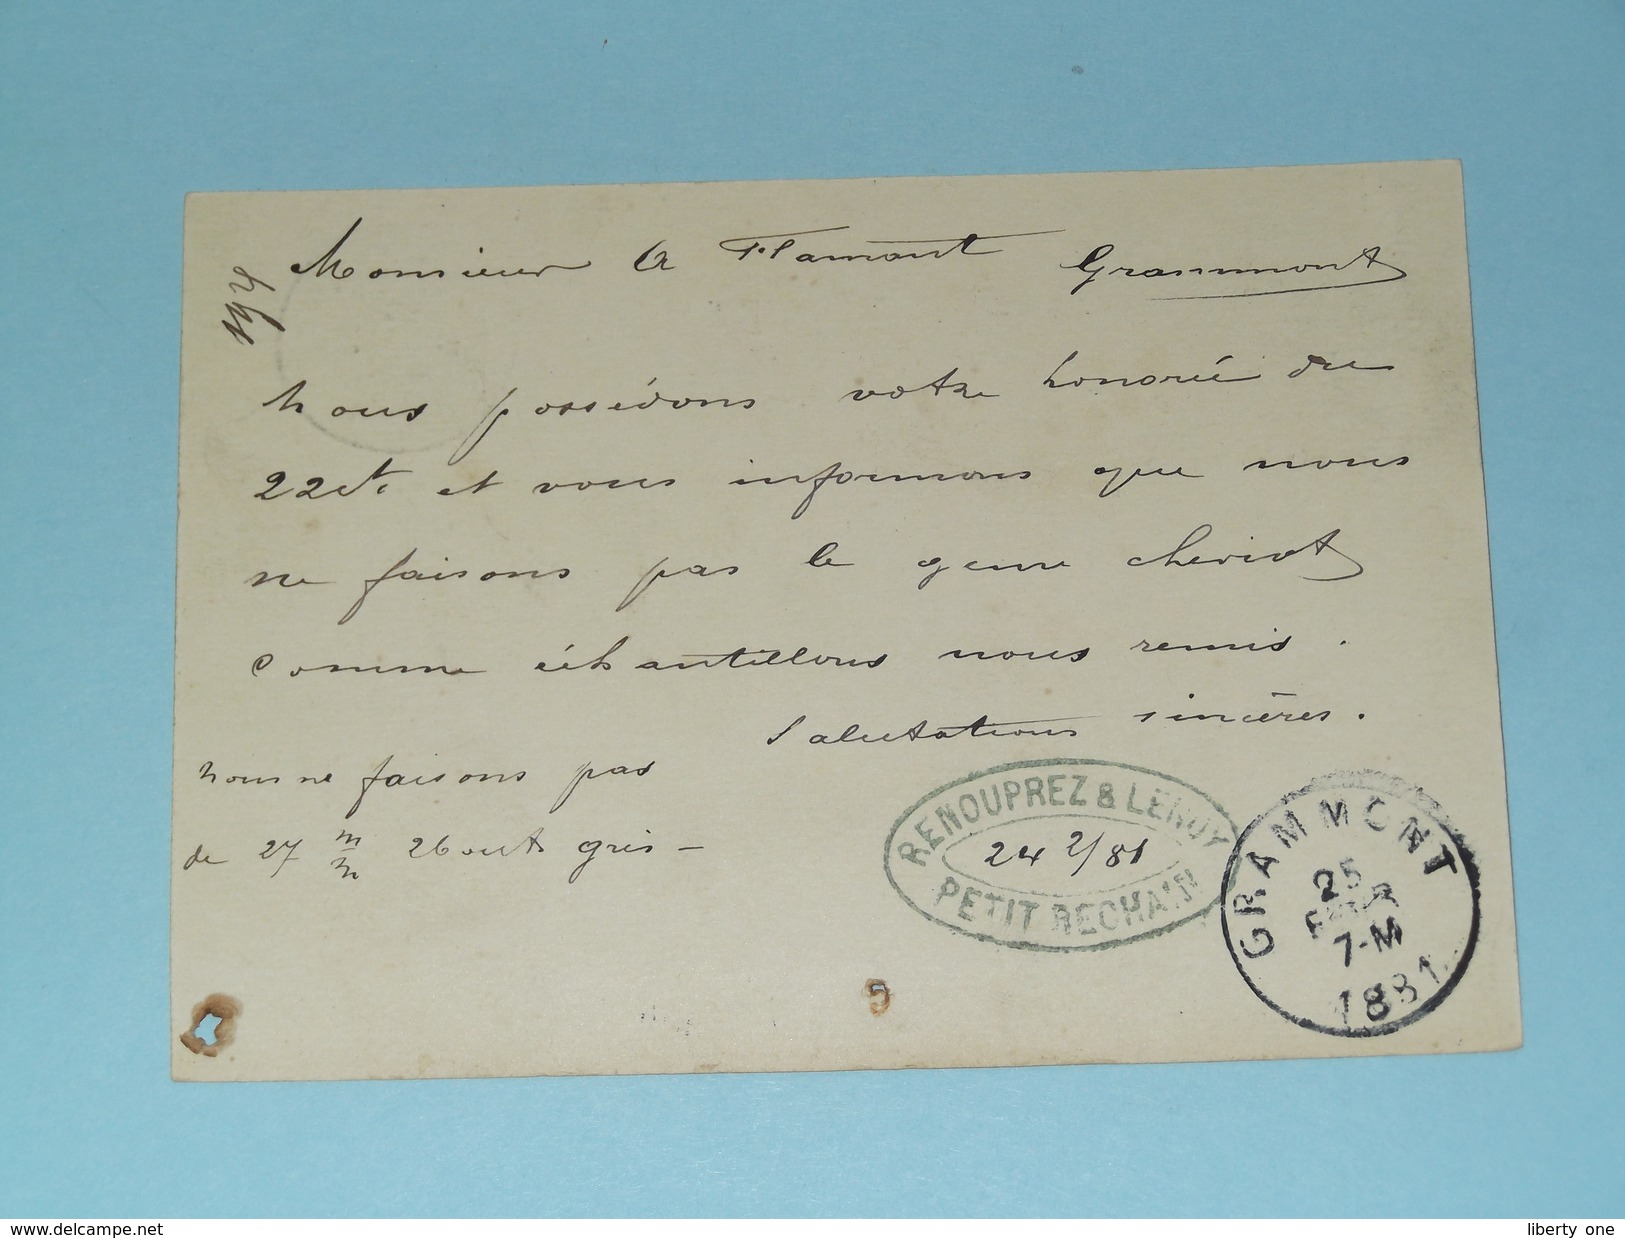 Monsieur A Flamant Grammont
Nous possédons votre honorée du
22 ct et vous informons que nous
ne faisons pas le genre cheviot
comme échantillons nous remis.
Salutations sincères.
nous ne faisons pas
de 27 m/m gris -
RENOUPREZ & LENOY
24 2/81
PETIT RECHAIN
GRAMMONT
25
FEVR
7-M
1881
www.delcampe.net
liberty_one